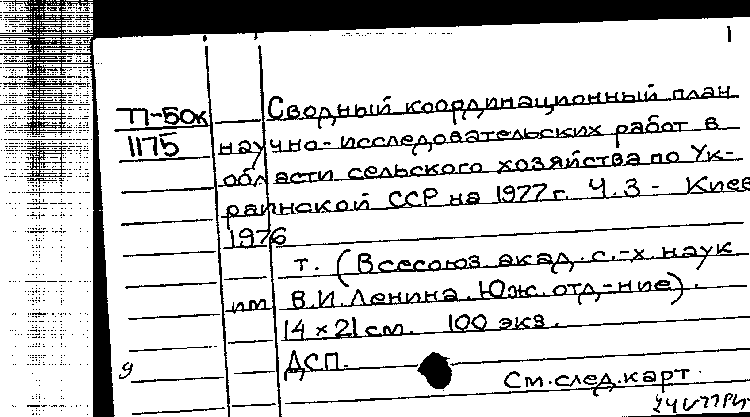 1
77-50к Сводный координационный план
1175 научно-исследовательских работ в
области сельского хозяйства по Ук-
раинской ССР на 1977 г. Ч. 3 - Киев
1976
т. (Всесоюз. акад. с.-х. наук
им В.И. Ленина. Юж. отд-ние).
14 × 21 см. 100 экз.
ДСП.
9
См. след. карт.